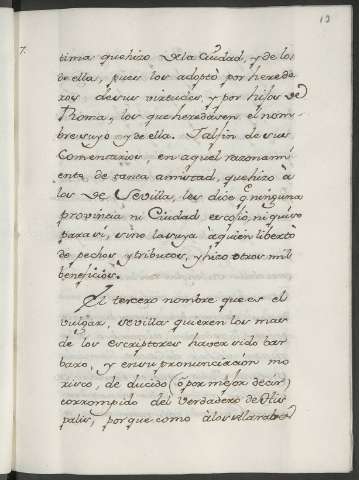 12
7.
tima quehizo dela Ciudad, y de los
de ella, pues los adoptò por herede
ros desus virtudes, y por hijos de
Roma, los que heredasen el nom-
bre suyo y de ella. Talfin de sus
Comentarios, en aquel razonami
ento de tanta amistad, quehizo à
los de Sevilla, les dice q. ninguna
provincia ni Ciudad escoliò, ni quiso
para si, sino la suya à quien libertò
de pechos y tributos, y hizo otros mil
beneficios.
El tercero nombre que es el
vulgar, sevilla quieren los mas
de los escriptores haver sido bar
baro, y ensu pronunciaciòn mo
risco, de ducido (ò por mejor decir)
corrompido del verdadero de His
palis, porque como